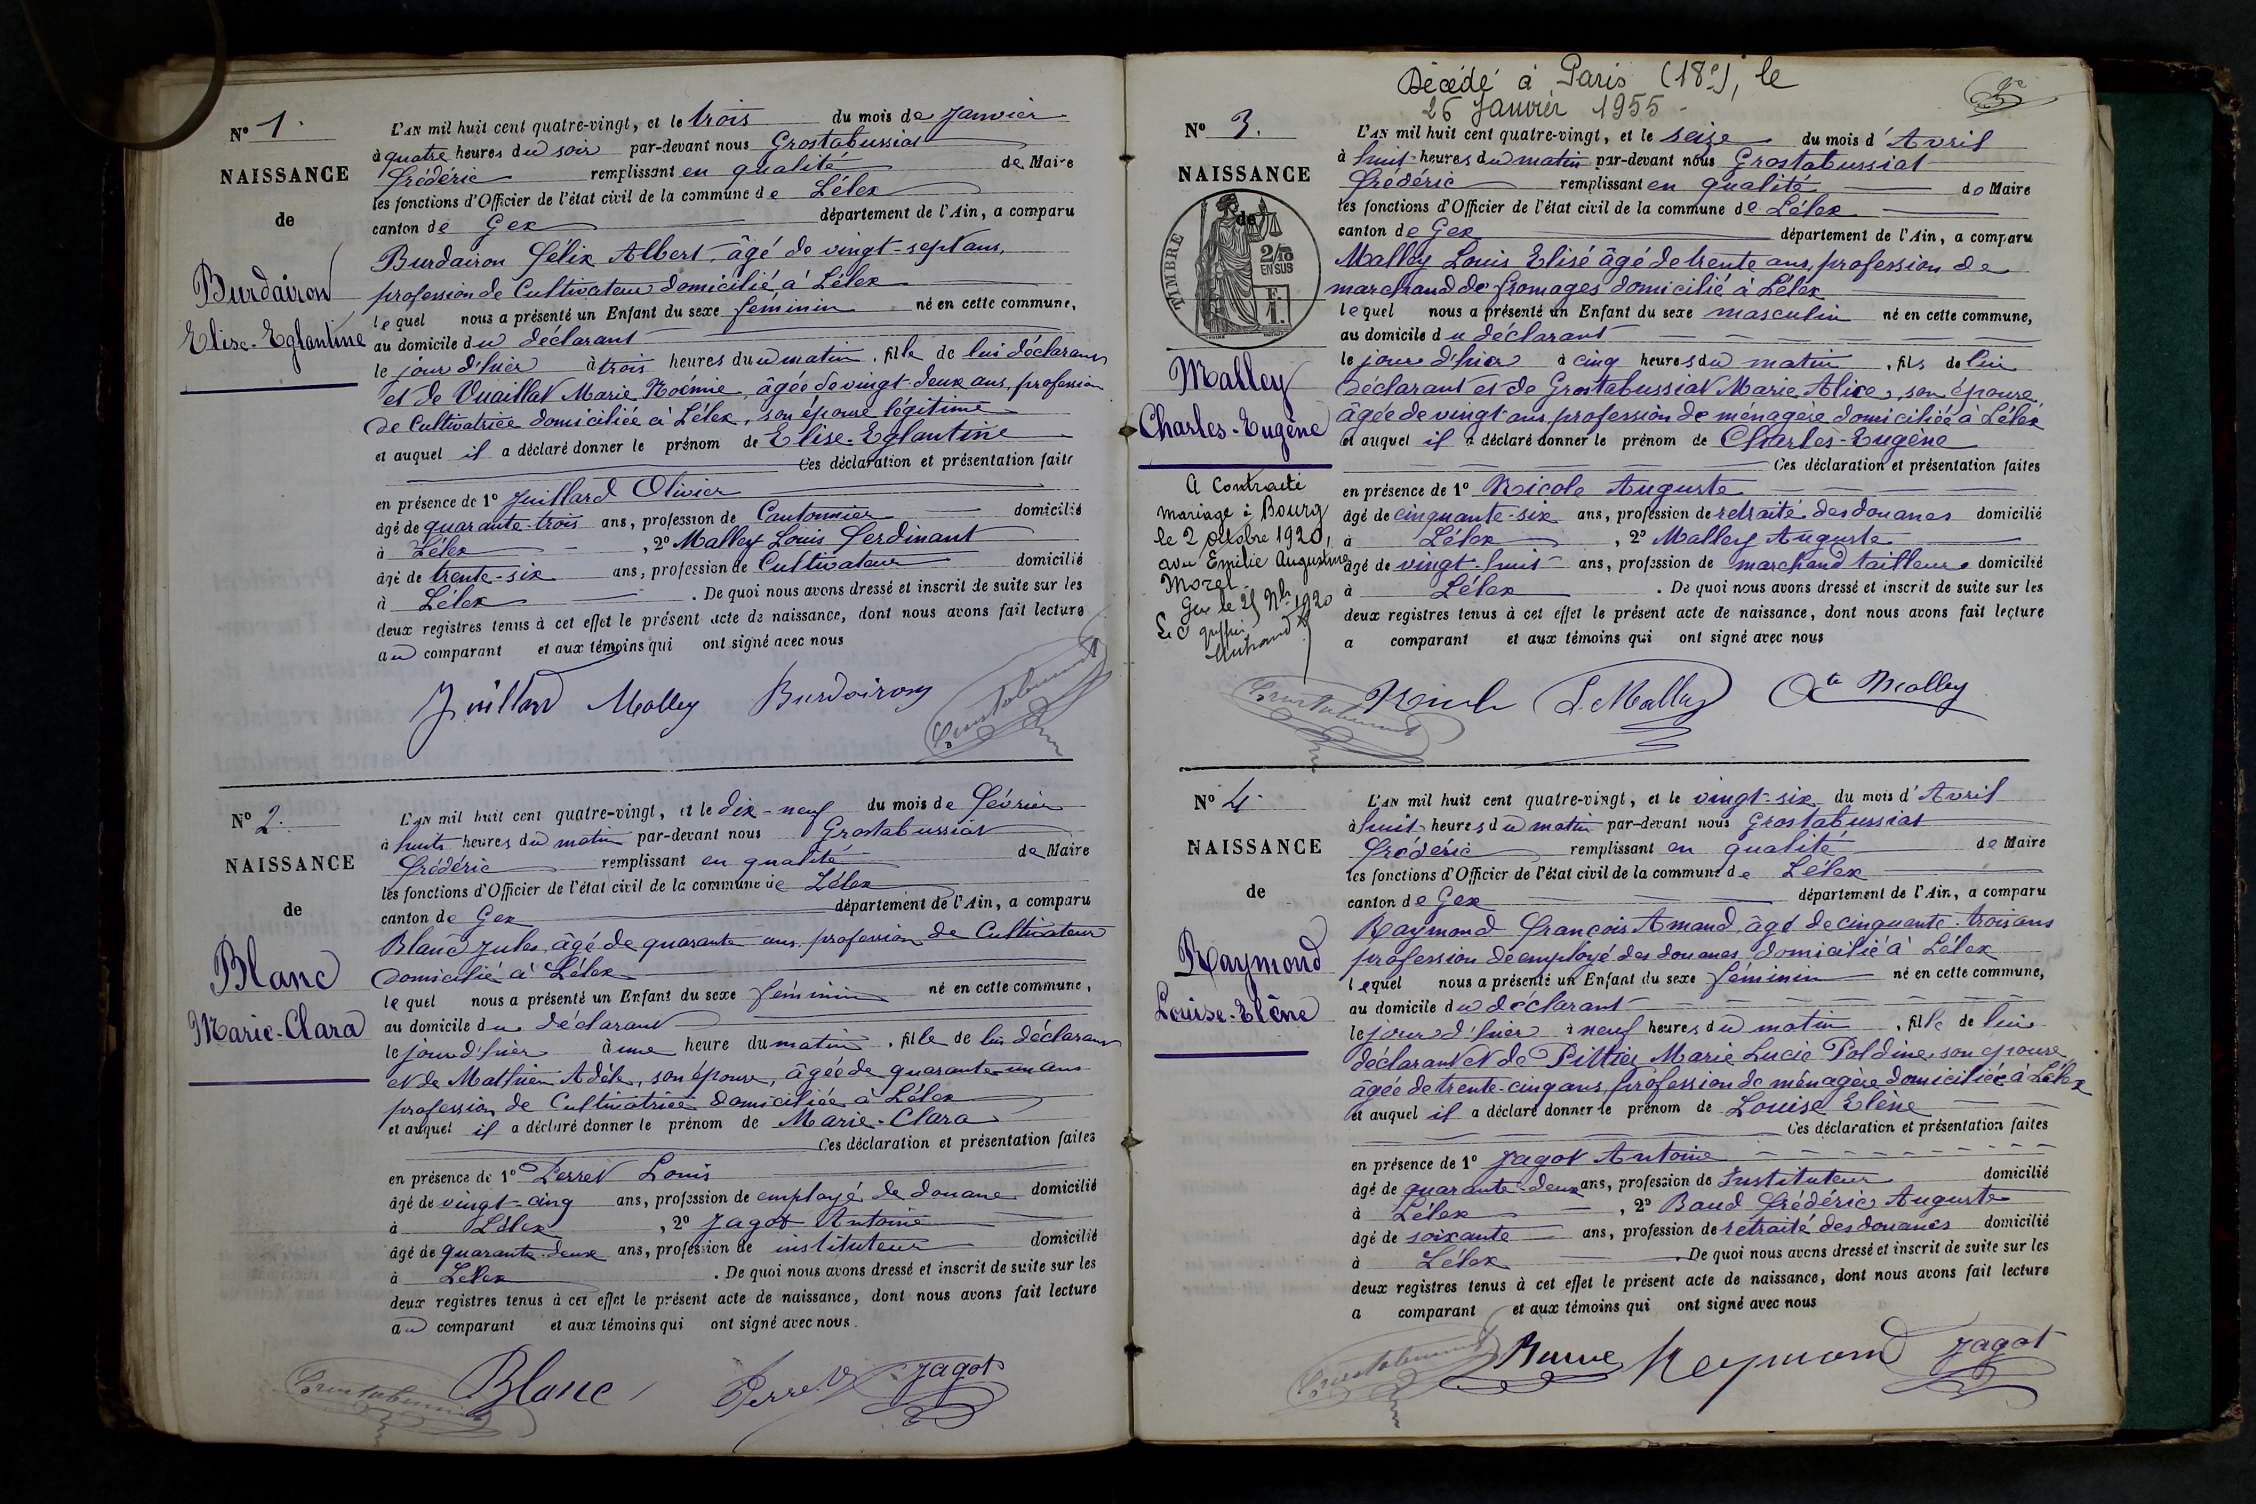 N° 1.
NAISSANCE
de
Burdairon
Elise-Eglantine
L'AN mil huit cent quatre-vingt, et le trois du mois de Janvier
à quatre heures du soir par-devant nous Grostabussiat
Frédéric remplissant en qualité de Maire
les fonctions d'Officier de l'état civil de la commune de Lélex
canton de Gex département de l'Ain, a comparu
Burdairon Félix Albert, âgé de vingt-sept ans,
profession de Cultivateur domicilié à Lélex
lequel nous a présenté un Enfant du sexe féminin né en cette commune,
au domicile du déclarant
le jour d'hier à trois heures du matin, fille de lui déclarant
et de Vuaillat Marie Noémie, âgée de vingt-deux ans, profession
de Cultivatrice domiciliée à Lélex, son épouse légitime
et auquel il a déclaré donner le prénom de Elise-Eglantine
Ces déclaration et présentation faites
en présence de 1° Juillard Olivier
âgé de quarante-trois ans, profession de Cantonnier domicilié
à Lélex, 2° Malley Louis Ferdinant
âgé de trente-six ans, profession de Cultivateur domicilié
à Lélex. De quoi nous avons dressé et inscrit de suite sur les
deux registres tenus à cet effet le présent acte de naissance, dont nous avons fait lecture
au comparant et aux témoins qui ont signé avec nous
Juillard Malley Burdairon Grostabussiat
N° 2.
NAISSANCE
de
Blanc
Marie-Clara
L'AN mil huit cent quatre-vingt, et le dix-neuf du mois de Février
à huit heures du matin par-devant nous Grostabussiat
Frédéric remplissant en qualité de Maire
les fonctions d'Officier de l'état civil de la commune de Lélex
canton de Gex département de l'Ain, a comparu
Blanc Jules, âgé de quarante ans, profession de Cultivateur
domicilié à Lélex
lequel nous a présenté un Enfant du sexe féminin né en cette commune,
au domicile du déclarant
le jour d'hier à une heure du matin, fille de lui déclarant
et de Mathieu Adèle, son épouse, âgée de quarante-un ans
profession de Cultivatrice domiciliée à Lélex
et auquel il a déclaré donner le prénom de Marie-Clara
Ces déclaration et présentation faites
en présence de 1° Perret Louis
âgé de vingt-cinq ans, profession de employé de douane domicilié
à Lélex, 2° Jagot Antoine
âgé de quarante-deux ans, profession de instituteur domicilié
à Lélex. De quoi nous avons dressé et inscrit de suite sur les
deux registres tenus à cet effet le présent acte de naissance, dont nous avons fait lecture
au comparant et aux témoins qui ont signé avec nous.
Grostabussiat Blanc Perret Jagot
Décédé à Paris (18e), le
26 Janvier 1955 -
N° 3.
NAISSANCE
de
TIMBRE
2/10
EN SUS
Malley
Charles-Eugène
A Contracté
mariage à Bourg
le 2 octobre 1920,
avec Emilie Augustine
Morel
Gex le 25 9bre 1920
Le greffier
L'AN mil huit cent quatre-vingt, et le seize du mois d'Avril
à huit heures du matin par-devant nous Grostabussiat
Frédéric remplissant en qualité de Maire
les fonctions d'Officier de l'état civil de la commune de Lélex
canton de Gex département de l'Ain, a comparu
Malley Louis Elisé âgé de trente ans, profession de
marchand de fromages domicilié à Lélex
lequel nous a présenté un Enfant du sexe masculin né en cette commune,
au domicile du déclarant
le jour d'hier à cinq heures du matin, fils de lui
déclarant et de Grostabussiat Marie Alice, son épouse,
âgée de vingt ans, profession de ménagère domiciliée à Lélex
et auquel il a déclaré donner le prénom de Charles-Eugène
Ces déclaration et présentation faites
en présence de 1° Nicole Auguste
âgé de cinquante-six ans, profession de retraité des douanes domicilié
à Lélex, 2° Malley Auguste
âgé de vingt-huit ans, profession de marchand tailleur domicilié
à Lélex. De quoi nous avons dressé et inscrit de suite sur les
deux registres tenus à cet effet le présent acte de naissance, dont nous avons fait lecture
a comparant et aux témoins qui ont signé avec nous
Grostabussiat Nicole L. Malley Ate Malley
N° 4.
NAISSANCE
de
Raymond
Louise-Elène
L'AN mil huit cent quatre-vingt, et le vingt-six du mois d'Avril
à huit heures du matin par-devant nous Grostabussiat
Frédéric remplissant en qualité de Maire
les fonctions d'Officier de l'état civil de la commune de Lélex
canton de Gex département de l'Ain, a comparu
Raymond François Amand, âgé de cinquante-trois ans
profession de employé des douanes domicilié à Lélex
lequel nous a présenté un Enfant du sexe féminin né en cette commune,
au domicile du déclarant
le jour d'hier à neuf heures du matin, fille de lui
déclarant et de Pittier Marie Lucie Poldine, son épouse,
âgée de trente-cinq ans, profession de ménagère domiciliée à Lélex
et auquel il a déclaré donner le prénom de Louise Elène
Ces déclaration et présentation faites
en présence de 1° Jagot Antoine
âgé de quarante-deux ans, profession de Instituteur domicilié
à Lélex, 2° Baud Frédéric Auguste
âgé de soixante ans, profession de retraité des douanes domicilié
à Lélex. De quoi nous avons dressé et inscrit de suite sur les
deux registres tenus à cet effet le présent acte de naissance, dont nous avons fait lecture
a comparant et aux témoins qui ont signé avec nous
Grostabussiat Raymond Jagot